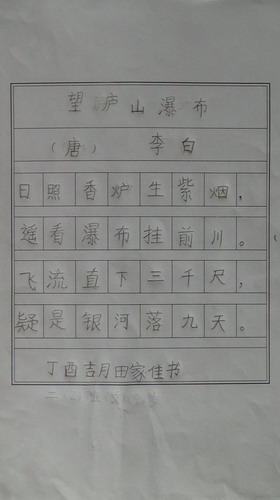 望庐山瀑布
（唐） 李白
日照香炉生紫烟，
遥看瀑布挂前川。
飞流直下三千尺，
疑是银河落九天。
丁酉吉月田家佳书